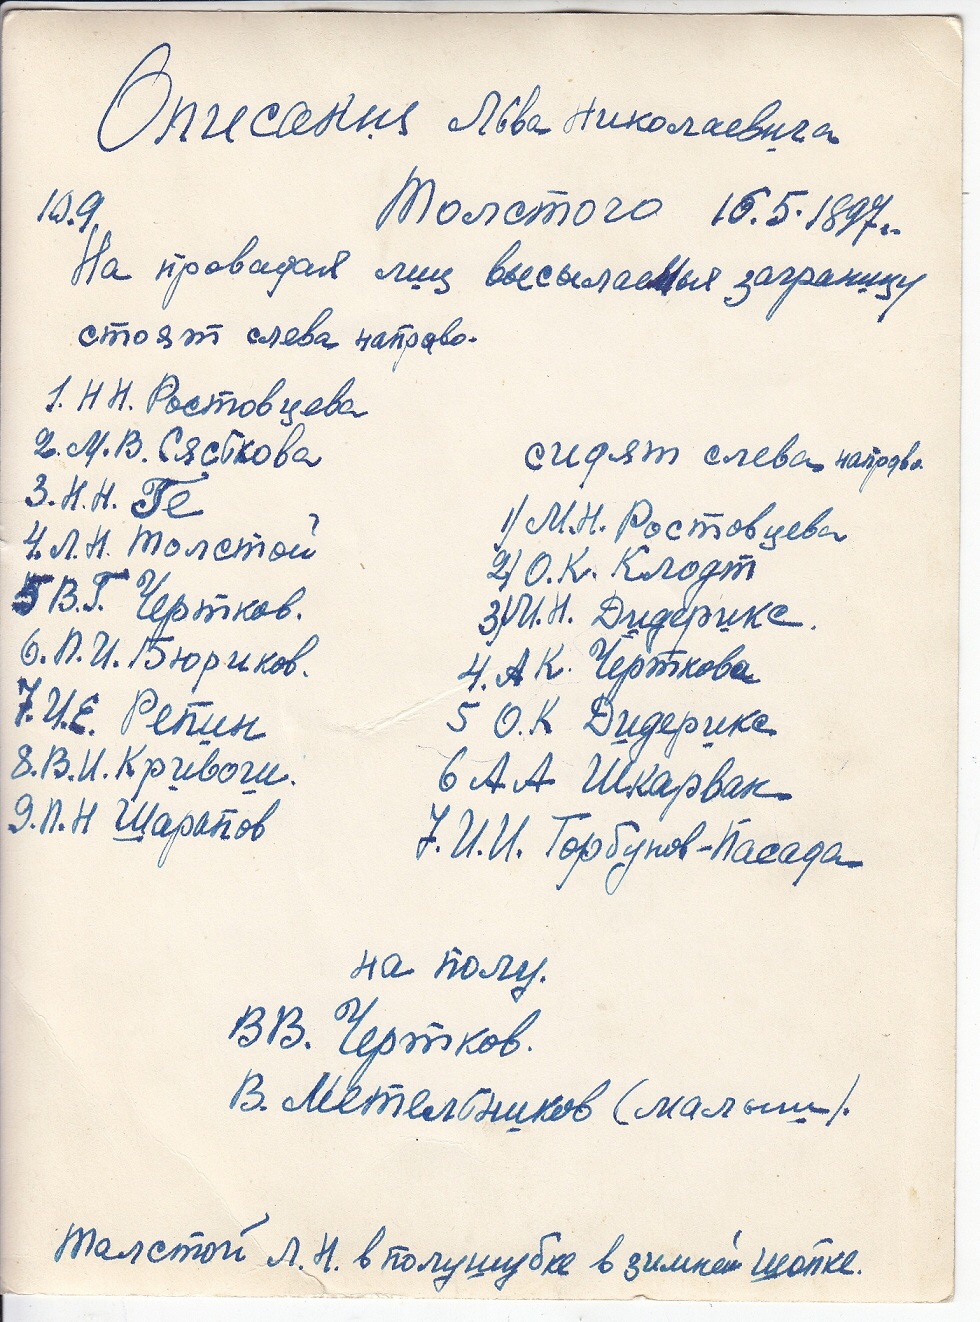 Описания Льва Николаевича
10.9. Толстого 15.5.1897..
На провадая лиц высылаемыя заграницу
стоят слева направо.
1. Н Н. Ростовцева
2. М. В. Сяськова
3. Н. Н. Ге
4. Л. Н. Толстой
5 В. Г. Чертков.
6. П. И. Бюриков.
7. И. Е. Репин
8. В. И. Кривош.
9. П. Н Шарапов
сидят слева направо.
1) М. Н. Ростовцева
2) О. К. Клодт
3) И. Н. Дидерикс.
4. А К. Черткова
5 О. К Дидерикс
6 А А Шкарвак
7. И. И. Горбунов-Пасада
на полу.
В В. Чертков.
В. Метельников (малыш).
Талстой Л. Н. в полушубке в зимней шопке.